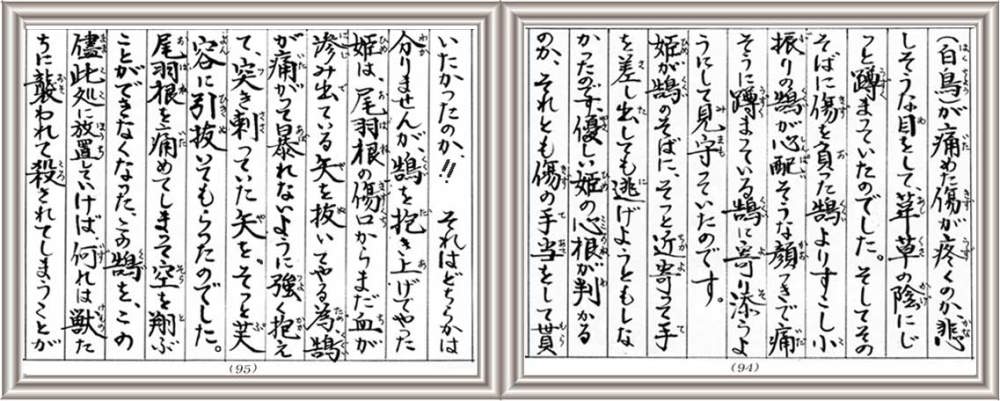 (白鳥)が痛めた傷が疼くのか、悲
しそうな目をして、葦草の陰にじ
っと蹲まっていたのでした。そしてその
そばに傷を負った鵠よりすこし小
振りの鵠が心配そうな顔つきで痛
そうに蹲まっている鵠に寄り添うよ
うにして見守っていたのです。
姫が鵠のそばに、そっと近寄って手
を差し出しても逃げようともしな
かったのです、優しい姫の心根が判かる
のか、それとも傷の手当をして貰
(94)
いたかったのか、!! それはどちらかは
分りませんが、鵠を抱き上げてやった
姫は、尾羽根の傷口からまだ血が
滲み出ている矢を抜いてやる為、鵠
が痛がって暴れないように強く抱え
て、突き刺っていた矢を。そっと芙
容に引抜いてもらったのでした。
尾羽根を痛めてしまって空を翔ぶ
ことができなくなった、この鵠を、この
儘此処に放置していけば、何れは獣た
ちに襲われて殺されてしまうことが
(95)